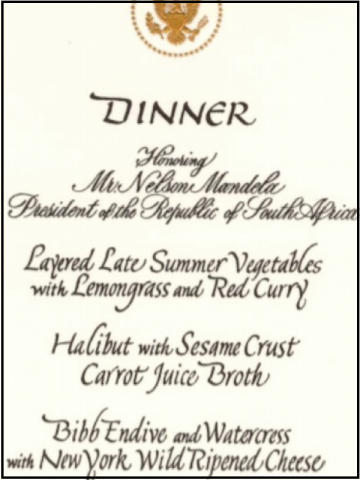 DINNER
Honoring
Mr. Nelson Mandela
President of the Republic of South Africa
Layered Late Summer Vegetables
with Lemongrass and Red Curry
Halibut with Sesame Crust
Carrot Juice Broth
Bibb Endive and Watercress
with New York Wild Ripened Cheese